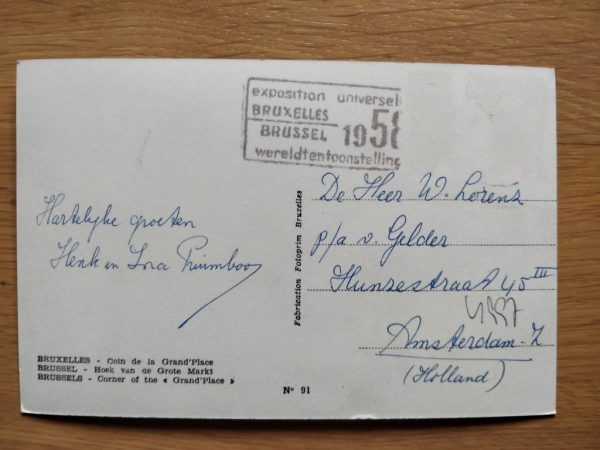 exposition universel
BRUXELLES
BRUSSEL 1958
wereldtentoonstelling
Hartelijke groeten
Henk en
De Heer W. Lorenz
p/a v. Gelder
Hunzestraat 45 III
Amsterdam-Z
(Holland)
Fabrication Fotoprim Bruxelles
BRUXELLES - Coin de la Grand'Place
BRUSSEL - Hoek van de Grote Markt
BRUSSELS - Corner of the « Grand'Place »
N° 91